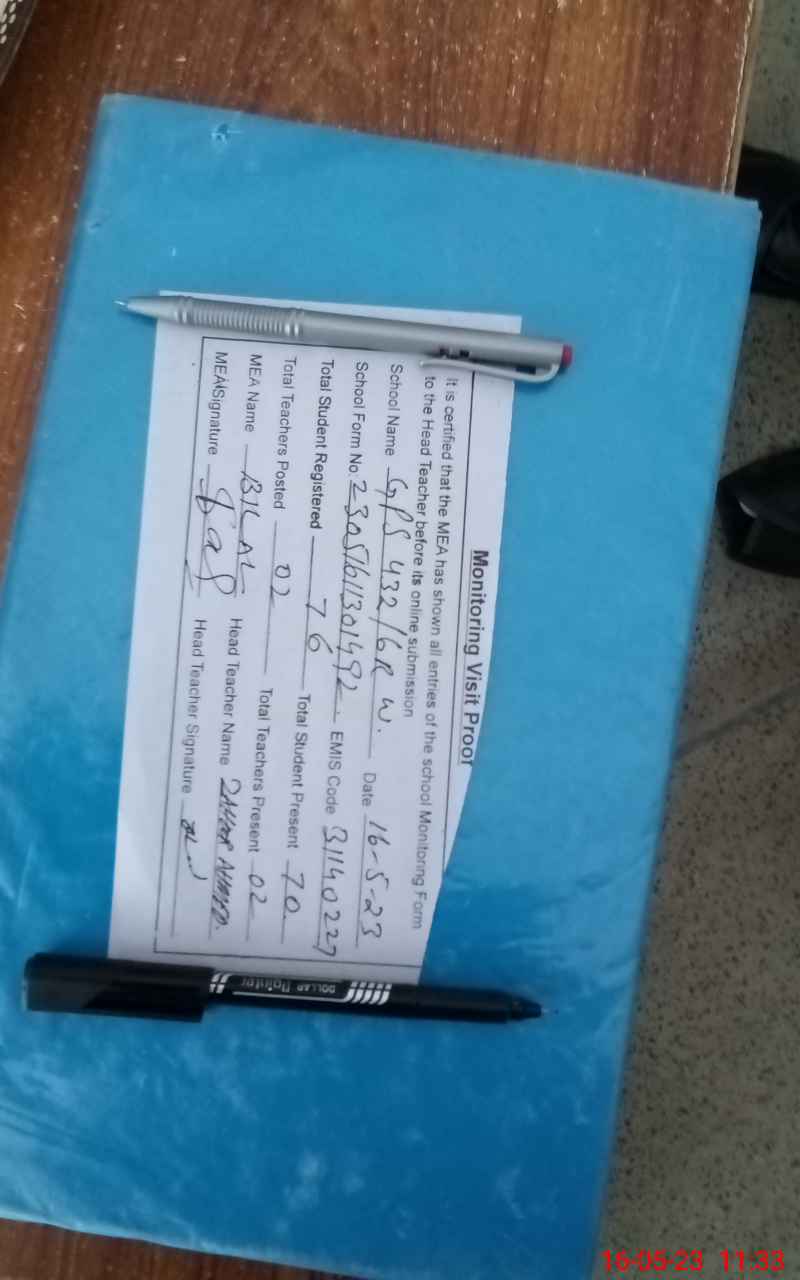 Monitoring Visit Proof
It is certified that the MEA has shown all entries of the school Monitoring Form
to the Head Teacher before its online submission
School Name GPS 432/6R W. Date 16-5-23
School Form No: 23051611301492 EMIS Code 31140227
Total Student Registered 76 Total Student Present 70
Total Teachers Posted 02 Total Teachers Present 02
MEA Name BILAL Head Teacher Name ZAHOOR AHMED.
MEA Signature Head Teacher Signature
DOLLAR Pointer
16-05-23 11:33